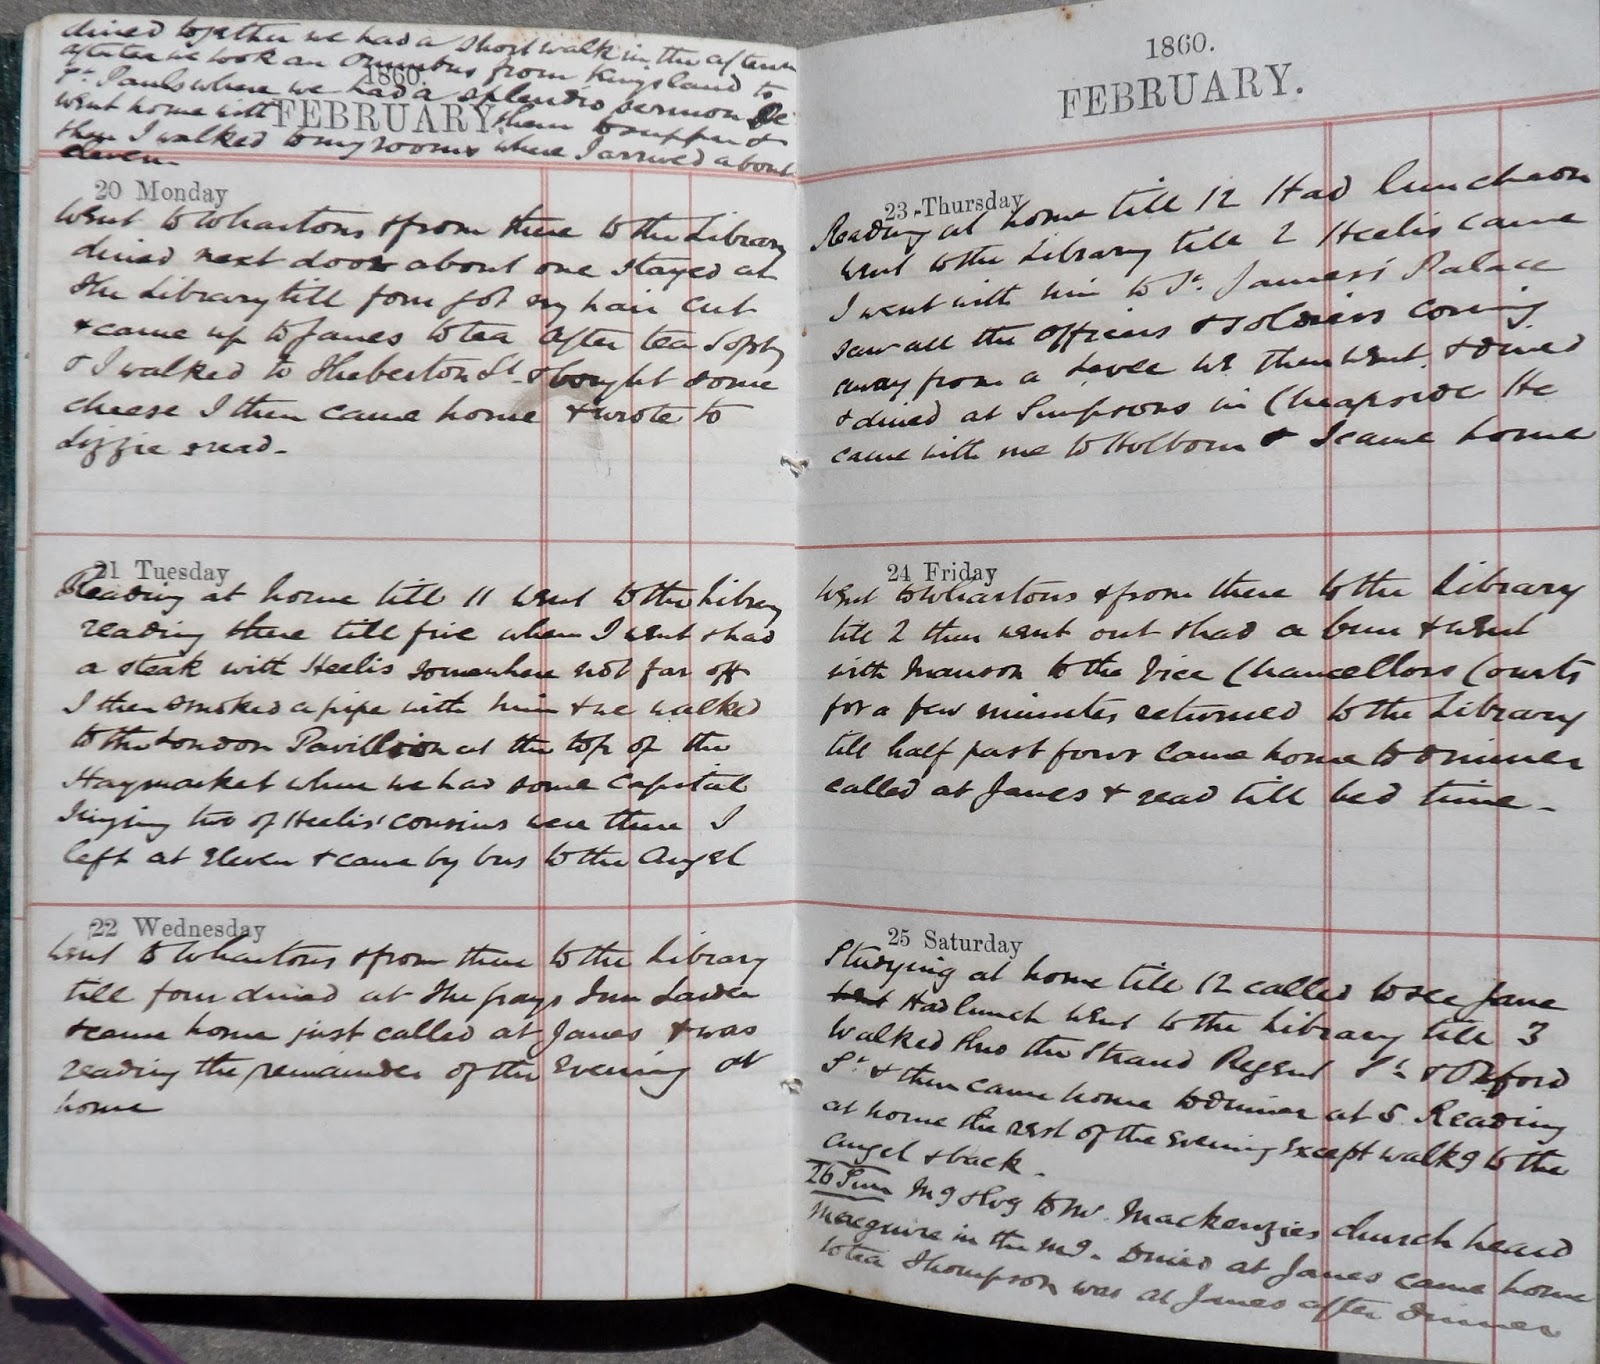 dined together we had a short walk in the aftern
after tea we took an Omnibus from Kingsland to
St. Pauls where we had a splendid sermon We
1860.
went home with them to supper &
FEBRUARY.
then I walked to my rooms where I arrived about
eleven
20 Monday
Went to Whartons & from there to the Library
dined next door about one stayed at
the Library till four got my hair cut
& came up to Janes to tea after tea Sophy
& I walked to Theberton St. & bought some
cheese I then came home & wrote to
Lizzie read.
21 Tuesday
Reading at home till 11 went to the Library
reading there till five when I went & had
a steak with Heelis somewhere not far off
I then smoked a pipe with him & we walked
to the London Pavillion at the top of the
Haymarket where we had some capital
singing two of Heelis' cousins were there I
left at eleven & came by bus to the Angel
22 Wednesday
Went to Whartons & from there to the Library
till four dined at the Grays Inn Larder
& came home just called at Janes & was
reading the remainder of the evening at
home
1860.
FEBRUARY.
23 Thursday
Reading at home till 12 Had luncheon
went to the Library till 2 Heelis came
I went with him to St. James's Palace
saw all the officers & soldiers coming
away from a Levee we then went & dined
& dined at Simpsons in Cheapside He
came with me to Holborn & I came home
24 Friday
Went to Whartons & from there to the Library
till 2 then went out & had a bun & went
with Manson to the Vice Chancellors Courts
for a few minutes returned to the Library
till half past four came home to dinner
called at Janes & read till bed time -
25 Saturday
Studying at home till 12 called to see Jane
went Had lunch went to the Library till 3
Walked thro the Strand Regent St. & Oxford
St. & then came home to dinner at 5 Reading
at home the rest of the evening except walkg to the
Angel & back -
26 Sun Mg & Evg to Mr. Mackenzies church heard
Macguire in the Mg. Dined at Janes came home
to tea Thompson was at Janes after dinner